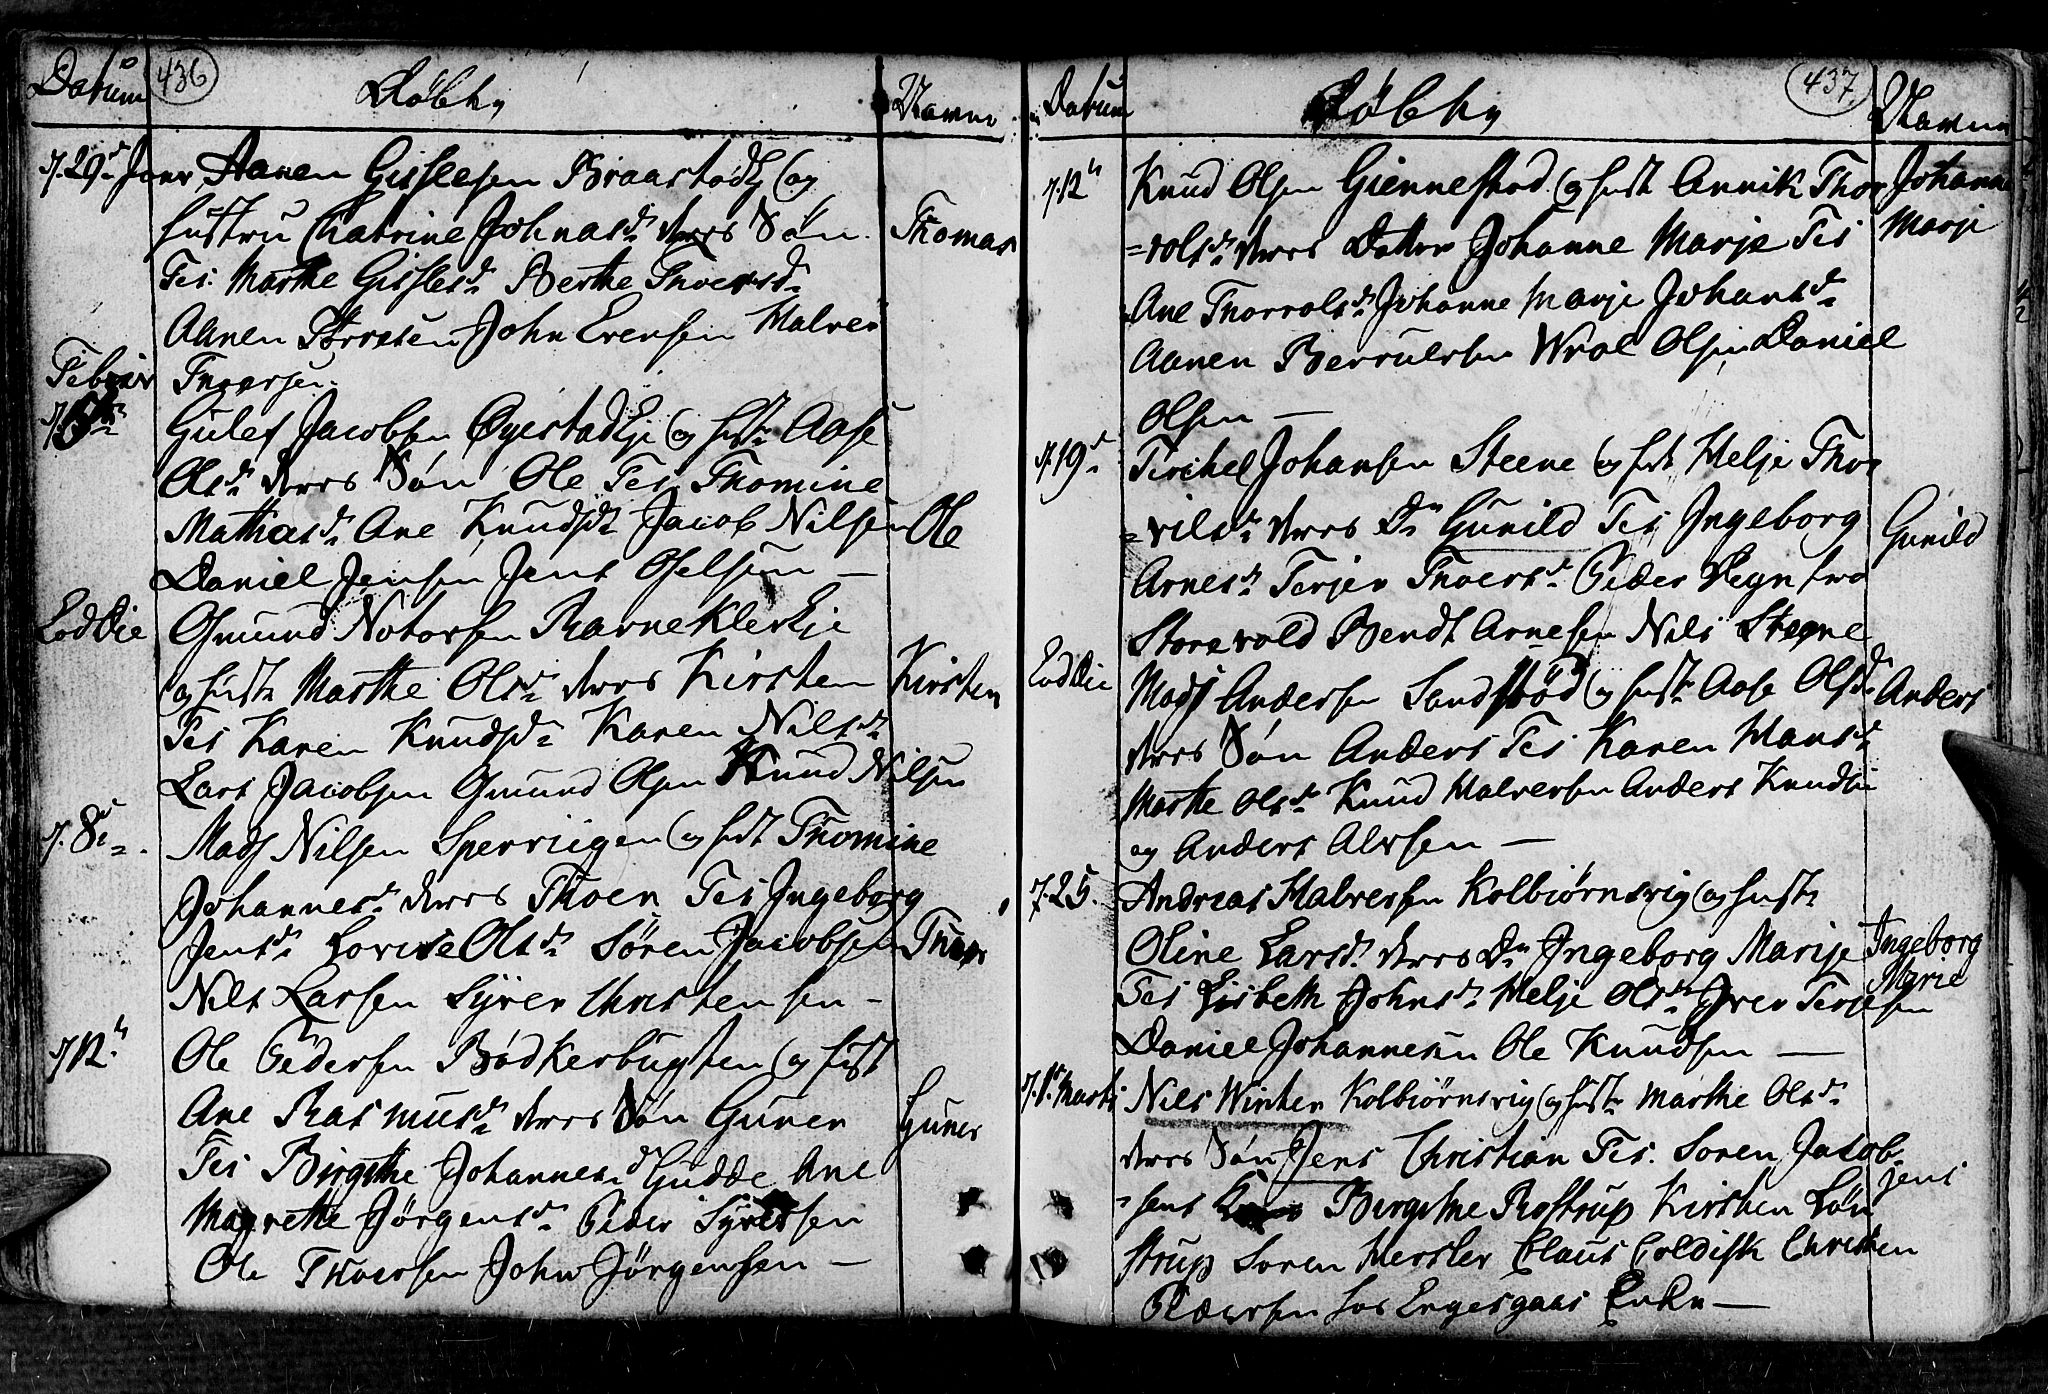 Datum 436 Døbte Navne
d. 29d Janr Aanen Gislesen Braastad (og Thomas
hustru Chatrine Johnasdr deres Søn
Tes. Marthe Gislesdr Berthe Thoersdr
Aanen Torsten John Evensen Halver
Thoersen.
Febrv
d. 5te Gulef Jacobsen ØyestadEje (og hustr Aase
Olsdr deres Søn Ole Tes. Thomine
Mathiasdr Ane Knudsdr Jacob Nilsen Ole
Daniel Jensen Jens Oselsen —
Eod Die Osmund Notorsen RavneKlevEje
og hustr Marthe Olsdr deres Kirsten Kirsten
Tes Karen Knudsdr Karen Nilsdr
Lars Jacobsen Osmund Olsen Knud Nilsen
d. 8de Mads Nilsen Sperviigen (og hust Thomine
Johannesdr deres Thoer Tes Ingeborg
Jensdr Lovise Olsdr Søren Jacobsen Thoer
Nils Larsen Syver Christensen —
d. 12te Ole Pedersen Bødkerbugten (og hust
Ane Rasmusdr deres Søn Guner Guner
Tes Birgithe Johannesdr Gudde Ane
Magrethe Jørgensdr Peder Syversen
Ole Thoersen John Jørgensen —
Datum Døbte 437 Navne
d. 12te Knud Olsen Giennestad (og hust Annik Thor Johanne
=volsdr deres Datter Johanne Marje Tes Marje
Ane Thorvolsdr Johanne Marje Johansdr
Aanen Berruldsen Wrol Olsen Daniel
Olsen —
d. 19d Terchel Johansen Steene (og hust Helje Thor
=vilsdr deres Dr Gunild Tes Ingeborg Gunild
Arnesdr Terjer Thoersdr Peder Degn fra
Storevold Bendt Arnesen Nils Steene
Eod Die Mads Andersen Sandstød (og hustr Aase Olsdr Anders
deres Søn Anders Tes Karen Hansdr
Marthe Olsdr Knud Halversen Anders Knudsen
og Anders Alvsen —
d. 25. Andreas Halversen Kolbiørnsvig (og hustr
Oline Larsdr deres Dr Ingeborg Marije Ingeborg
Tes Lisbeth Johnsdr Helje Olsdr Iver Terjesen Marie
Daniel Johannesen Ole Knudsen —
d. 1ste Marti Nils Winter Kolbiørnsvig (og hustr Marthe Olsdr
deres Søn Jens Christian Tes. Soren Jacob-
=sens Birgithe Rostrup Kirsten Løn Jens
strup Soren Herslev Claus Coldisk Christen
Pedersen hos Engesgaas Enke —